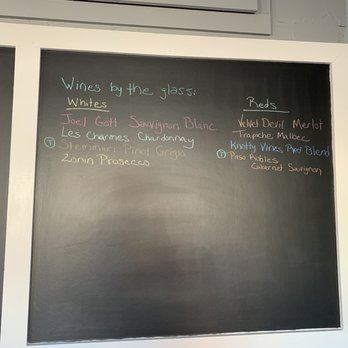 Wines by the glass:
Whites
Joel Gott Sauvignon Blanc
Les Charmes Chardonnay
T Stemmari Pinot Grigio
Zonin Prosecco
Reds
Velvet Devil Merlot
Trapiche Malbec
Knotty Vines Red Blend
Paso Robles
Cabernet Sauvignon